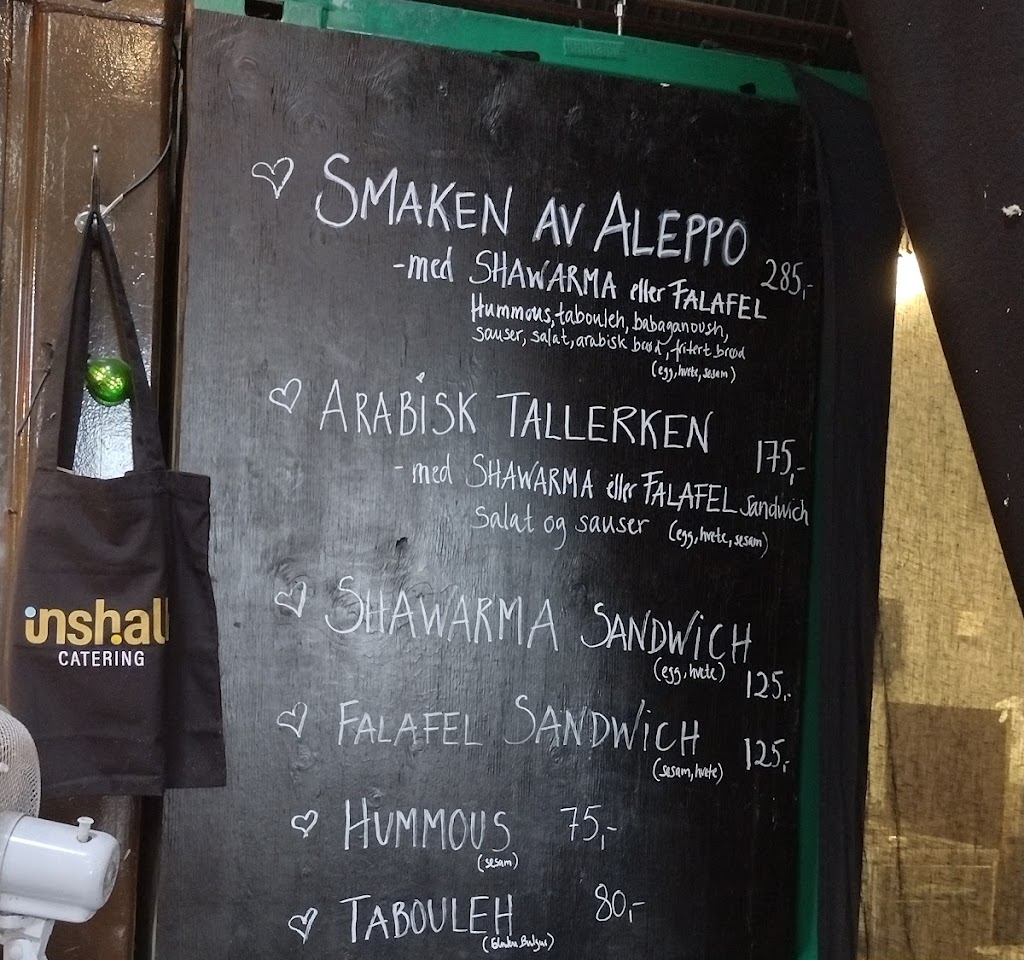 SMAKEN AV ALEPPO
-med SHAWARMA eller FALAFEL 285,-
Hummous, tabouleh, babaganoush,
sauser, salat, arabisk brød, fritert brød
(egg, hvete, sesam)
ARABiSK TALLERKEN
175,-
-med SHAWARMA eller FALAFEL Sandwich
Salat og sauser (egg, hvete, sesam)
SHAWARMA SANDWiCH
(egg, hvete) 125,-
FALAFEL SANDWiCH 125,-
(sesam, hvete)
HUMMOUS 75,-
(sesam)
TABOULEH 80,-
inshall
CATERING